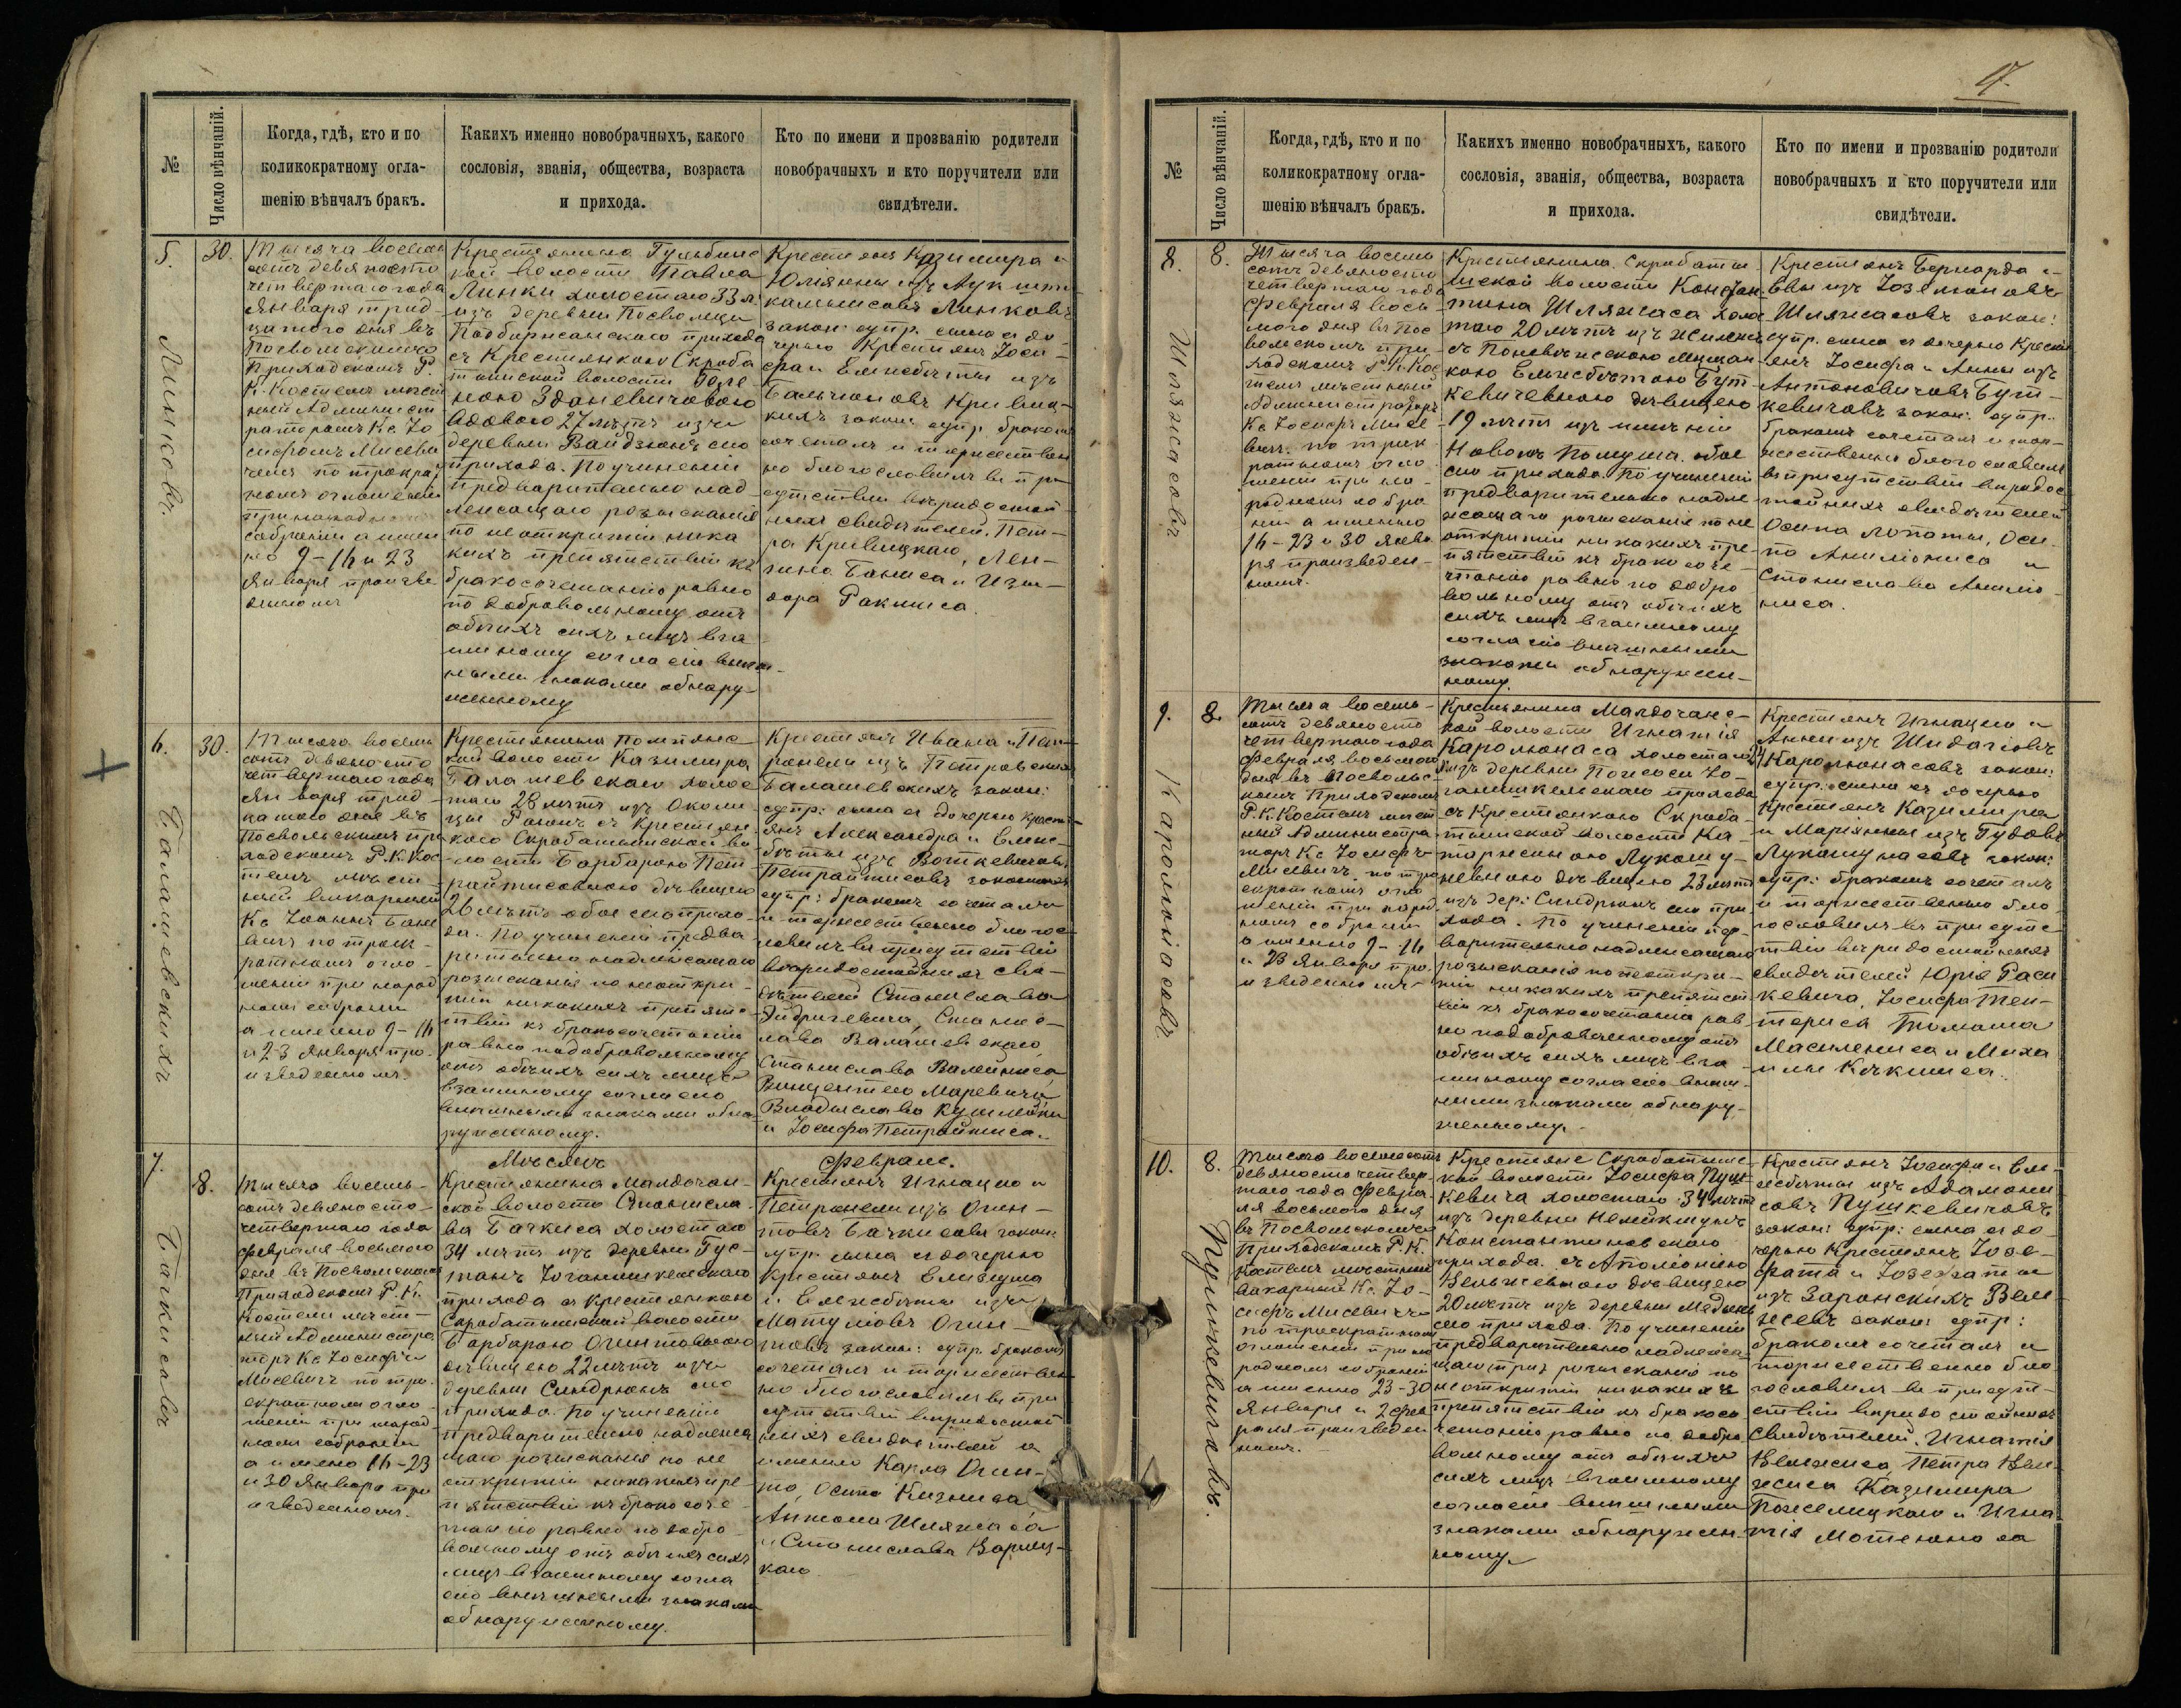 №
Число вѣнчаній.
Когда, гдѣ, кто и по
коликократному огла-
шенію вѣнчалъ бракъ.
Какихъ именно новобрачныхъ, какого
сословія, званія, общества, возраста
и прихода.
Кто по имени и прозванію родители
новобрачныхъ и кто поручители или
свидѣтели.
5.
Линковъ.
30.
Тысяча восемь
сотъ девяносто
четвертаго года
Января трид
цатого дня въ
Посвольскомъ
Приходскомъ Р.
К. Костелѣ мѣст
ный Админист
раторомъ Кс. Іо
сифомъ Мисеви
чемъ по трократ
номъ оглашеніи
при народномъ
собраніи а имен
но 9-16 и 23
Января произве
денномъ
Крестьянина Гульбинс
кой волости Павла
Линки холостаго 33 л.
изъ деревни Посвольци
Подбиржанскаго прихода
съ Крестьянкою Скроба
тышской волости Геле
ною Зданевичовою
вдовою 27 лѣтъ изъ
деревни Вайдзюнъ сю
прихода. По учиненіи
предварительно над
лежащаго розысканія
по не открытіи ника
кихъ препятствій къ
бракосочетанію равно
по добровольному отъ
обѣихъ сихъ лицъ вза
имному согласію внѣш
ными знаками обнару-
женному
Крестьянъ Казимира и
Юліянны изъ Лукшт
камписовъ Линковъ
закон: супр. сына съ до-
черью Крестьянъ Іоси-
фа и Елисебѣты изъ
Бальчюновъ Кривиц-
кихъ закон: супр. бракомъ
сочеталъ и торжествен
но благословилъ въ при
сутствіи вѣридостой
ныхъ свидѣтелей. Пет-
ра Кривицкаго, Лен-
гина Баниса и Изи-
дора Ракниса.
6.
Балашевскихъ
30.
Тысяча восемь
сотъ девяносто
четвертаго года
Января трид-
цатаго дня въ
Посвольскомъ при
ходскомъ Р. К. Кос
телѣ мѣст-
ный викарный
Кс Іоаннъ Бане
вичъ по трок-
ратномъ огло-
шеніи при народ
номъ собраніи
а именно 9-16
и 23 Января про-
изведенномъ.
Крестьянина Помпянс
кой волости Казимира
Балашевскаго холос
таго 28 лѣтъ изъ Околи
цы съ Крестьян
кою Скробатышской во
лости Барбарою Пет
райтисовною дѣвицею
26 лѣтъ обое сю прихо-
да. По учиненіи предва
рительно надлежащаго
розысканія по неоткры-
тіи никакихъ препятс-
твій къ бракосочетанію
равно по добровольному
отъ обѣихъ сихъ лицъ
взаимному согласію
внѣшными знаками обна
руженному.
Крестьянъ Ивана и Пет-
ронели изъ Петровскихъ
Балашевскихъ закон:
супр: сына съ дочерью крест
янъ Александра и Елис-
бѣты изъ Войткевичовъ
Петрайтисовъ законныхъ
супр: бракомъ сочеталъ
и торжественно благос-
ловилъ въ присутствіи
вѣридостойныхъ сви-
дѣтелей Станислава
Эйдригевича, Станис-
лава Балашевскаго,
Станислава Валейниса,
Винцентего Маревича,
Владыслава Кушлейки
и Іосифа Петрайтиса.
Мѣсяцъ Февраль.
7.
Бачкисовъ
8.
Тысяча восемь-
сотъ девяносто
четвертаго года
Февраля восьмого
дня въ Посвольскомъ
Приходскомъ Р. К.
Костелѣ мѣст-
ный Администра
торъ Кс Іосифъ
Мисевичъ по тро-
екратномъ огло
шеніи при народ
номъ собраніи
а именно 16-23
и 30 Января про
изведенномъ.
Крестьянина Малдочан-
ской волости Станисла-
ва Бачкиса холостаго
34 лѣтъ изъ деревни Гус-
танъ Іоганишкельскаго
прихода съ Крестьянкою
Скробатышской волости
Барбарою Огинтовною
дѣвицею 22 лѣтъ изъ
деревни Синдрюнъ сю
прихода. По учиненіи
предварительно надлежа
щаго розысканія по не
открытіи никакихъ пре-
пятствій къ бракосоче-
танію равно по добро-
вольному отъ обѣихъ сихъ
лицъ взаимному согла
сію внѣшными знаками
обнаруженному.
Крестьянъ Игнацего и
Петронели изъ Огин-
товъ Бачкисовъ закон:
супр. сына съ дочерью
крестьянъ Елизеуша
и Елжсбѣты изъ
Матулювъ Огин-
товъ закон: супр. бракомъ
сочеталъ и торжествен
но благословилъ въ при
сутствіи вѣридостой
ныхъ свидѣтелей а
именно Карла Огин-
та, Осипа Кизниса
Антона Шляжаса
и Станислава Вориц-
каго
17.
№
Число вѣнчаній.
Когда, гдѣ, кто и по
коликократному огла-
шенію вѣнчалъ бракъ.
Какихъ именно новобрачныхъ, какого
сословія, званія, общества, возраста
и прихода.
Кто по имени и прозванію родители
новобрачныхъ и кто поручители или
свидѣтели.
8.
Шляжасовъ
8.
Тысяча восемь
сотъ девяносто
четвертаго года
Февраля вось-
мого дня въ Пос
вольскомъ при
ходскомъ Р. К. Кос
телѣ мѣстный
Администраторъ
Кс Іосифъ Мисе
вичъ. по трок-
ратномъ огло
шеніи при на-
родномъ собра
ніи а именно
16-23 и 30 Янва
ря произведен-
номъ.
Крестьянина Скробаты
шской волости Констан
тина Шляжаса холос
таго 20 лѣтъ изъ
съ Поневѣжскою мѣщан
кою Ельжсбѣтою Бут-
кевичевною дѣвицею
19 лѣтъ изъ имѣнія
Новомъ Помуша обое
сю прихода. По учиненіи
предварительно надле
жащаго розысканія по не
открытіи никакихъ пре-
пятствій къ бракосоче-
танію равно по добро
вольному отъ обѣихъ
сихъ лицъ взаимному
согласію внѣшными
знаками обнаружен-
ному.
Крестьянъ Бернарда и
Евы изъ Іозѣмановъ
Шляжасовъ закон:
супр. сына съ дочерью Крестья
янъ Іосифа и Анны изъ
Антоновичовъ Бут-
кевичовъ закон: супр.
бракомъ сочеталъ и тор-
жественно благословилъ
въ присутствіи вѣридос
тойныхъ свидѣтелей
Осипа Лопаты, Оси-
па Анилёниса и
Станислава Анилё-
ниса.
9.
Каролюнасовъ
8.
Тысяча восемь-
сотъ девяносто
четвертаго года
Февраля восьмого
дня въ Посвольс-
комъ Приходскомъ
Р. К. Костелѣ мѣст
ный Администра
торъ Кс Іосифъ
Мисевичъ. по тро
екратномъ огло
шеніи при народ
номъ собраніи
а именно 9-16
и 23 Января про-
изведенномъ
Крестьянина Малдочанс-
кой волости Игнатія
Каролюнаса холостаго 24
лѣтъ изъ деревни Іо-
ганишкельскаго прихода
съ Крестьянкою Скроба-
тышской волости Ка-
торженою Лукошу-
невною дѣвицею 23 лѣтъ
изъ дер: Синдрюнъ сю при
хода. По учиненіи пред-
варительно надлежащаго
розысканія по неоткры-
тіи никакихъ препятст
вій къ бракосочетанію рав-
но по добровольному отъ
обѣихъ сихъ лицъ вза-
имному согласію внѣш-
ными знаками обнару-
женному.
Крестьянъ Игнацего и
Анны изъ Шидагисовъ
Каролюнасовъ закон:
супр: сына съ дочерью
крестьянъ Казимира
и Маріянны изъ Гудовъ
Лукошунасовъ закон:
супр: бракомъ сочеталъ
и торжественно бла-
гословилъ въ присутс-
твіи вѣридостойныхъ
свидѣтелей Юрія Раси
кевича, Іосифа Тен-
териса Томаша
Масилениса и Миха
ила Кѣкшиса.
10.
Пушкевичовъ.
8.
Тысяча восемьсотъ
девяносто четвер-
таго года Февра-
ля восьмого дня
въ Посвольскомъ
Приходскомъ Р. К.
Костелѣ мѣстный
викарный Кс. Іо-
сифъ Мисевичъ
по троекратномъ
оглашеніи при на
родномъ собраніи
а именно 23-30
Января и 2 Фев
раля произведен
номъ.
Крестьяне Скробатышс
кой волости Іосифа Пуш
кевича холостаго 34 лѣтъ
изъ деревни Немейкшунъ
Константиновскаго
прихода. съ Аполоніею
Вельжевною дѣвицею
20 лѣтъ изъ деревни Медюнъ
сю прихода. По учиненіи
предварительно надлежа-
щаго розысканія по
неоткрытіи никакихъ
препятствій къ бракосо
четанію равно по добро
вольному отъ обѣихъ
сихъ лицъ взаимному
согласію внѣшными
знаками обнаружен-
ному
Крестьянъ Іосифа и Ел-
жсбѣты изъ Адамони
совъ Пушкевичовъ
закон: супр: сына съ до-
черью Крестьянъ Іозе-
фата и Іозефаты
изъ Заронскихъ Вель
жсевъ закон: супр:
бракомъ сочеталъ и
торжественно бла
гословилъ въ присутс-
ствіи вѣридостойныхъ
свидѣтелей. Игнатія
Вельжиса, Петра Вель
жиса Казимира
Пожелицкаго и Игна
тія Мотеюнаса